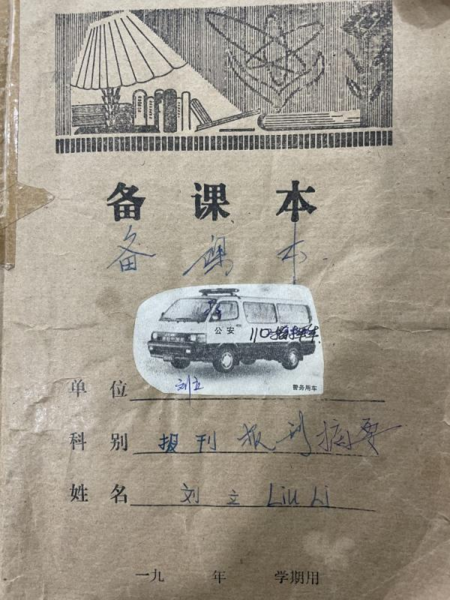 备课本
备课本
公安 110
警务用车
单位 刘立
科别 报刊 报刊摘要
姓名 刘立 Liu Li
一九 年 学期用